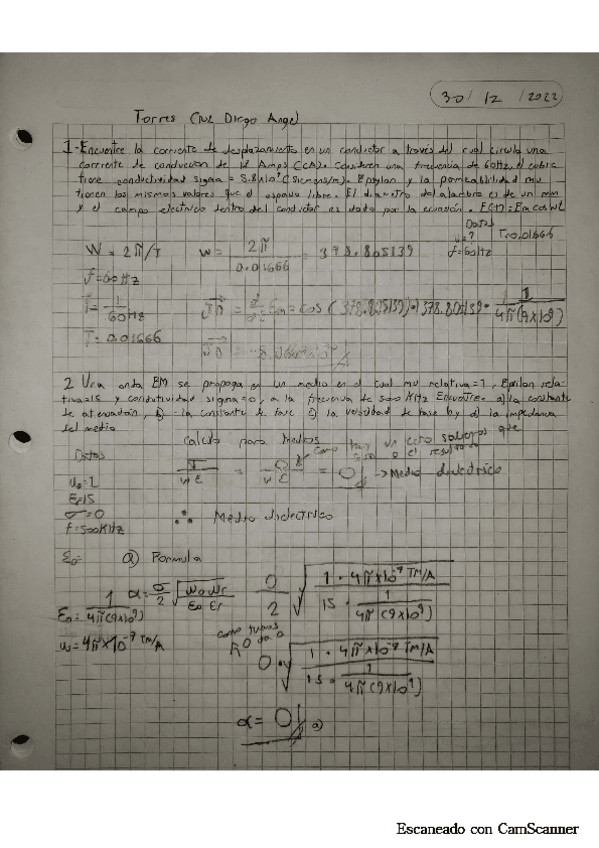 30/12/2022
Torres Cruz Diego Angel
1.-Encuentre la corriente de desplazamiento en un conductor a través del cual circula una
corriente de conducción de Amps (CA). Consideren una frecuencia de 60Hz, el cobre
tiene conductividad sigma = 5.8x10⁷ (Siemens/m). Epsylon y la permeabilidad mu
tienen los mismos valores que el espacio libre. El diametro del alambre es de un mm
y el campo electrico dentro del conductor es dado por la ecuación. E(t)=Em cos wt
Datos
w=? T=0.01666
f=60Hz
W = 2π/T w= 2π/0.01666 = 378.805139
f=60Hz
T= 1/60Hz = cos (378.805139) 378.805139 · 1/4π(9x10⁹)
T= 0.01666
2. Una onda EM se propaga en un medio en el cual mu relativa=1, Epsilon rela-
tiva=15 y conductividad sigma=0, a la frecuencia de 500 KHz Encuentre. a) la constante
de atenuación, b) la constante de fase c) la velocidad de fase y d) la impedancia
del medio
Calculo para Medios
Como hay un cero sabemos que
el resultado
Datos
= 0 → Medio dielectrico
E=15
σ=0
f=500KHz
∴ Medio dielectrico
ε₀=
a) Formula
α=σ/2 √ 0/2 √ 1 · 4πx10⁻⁷ TM/A / 15 · 1/4π(9x10⁹)
ε₀= 1/4π(9x10⁹)
u=4πx10⁻⁷ TM/A
como
0 · √ 1 · 4πx10⁻⁷ TM/A / 15 · 1/4π(9x10⁹)
α= 0 a)
Escaneado con CamScanner